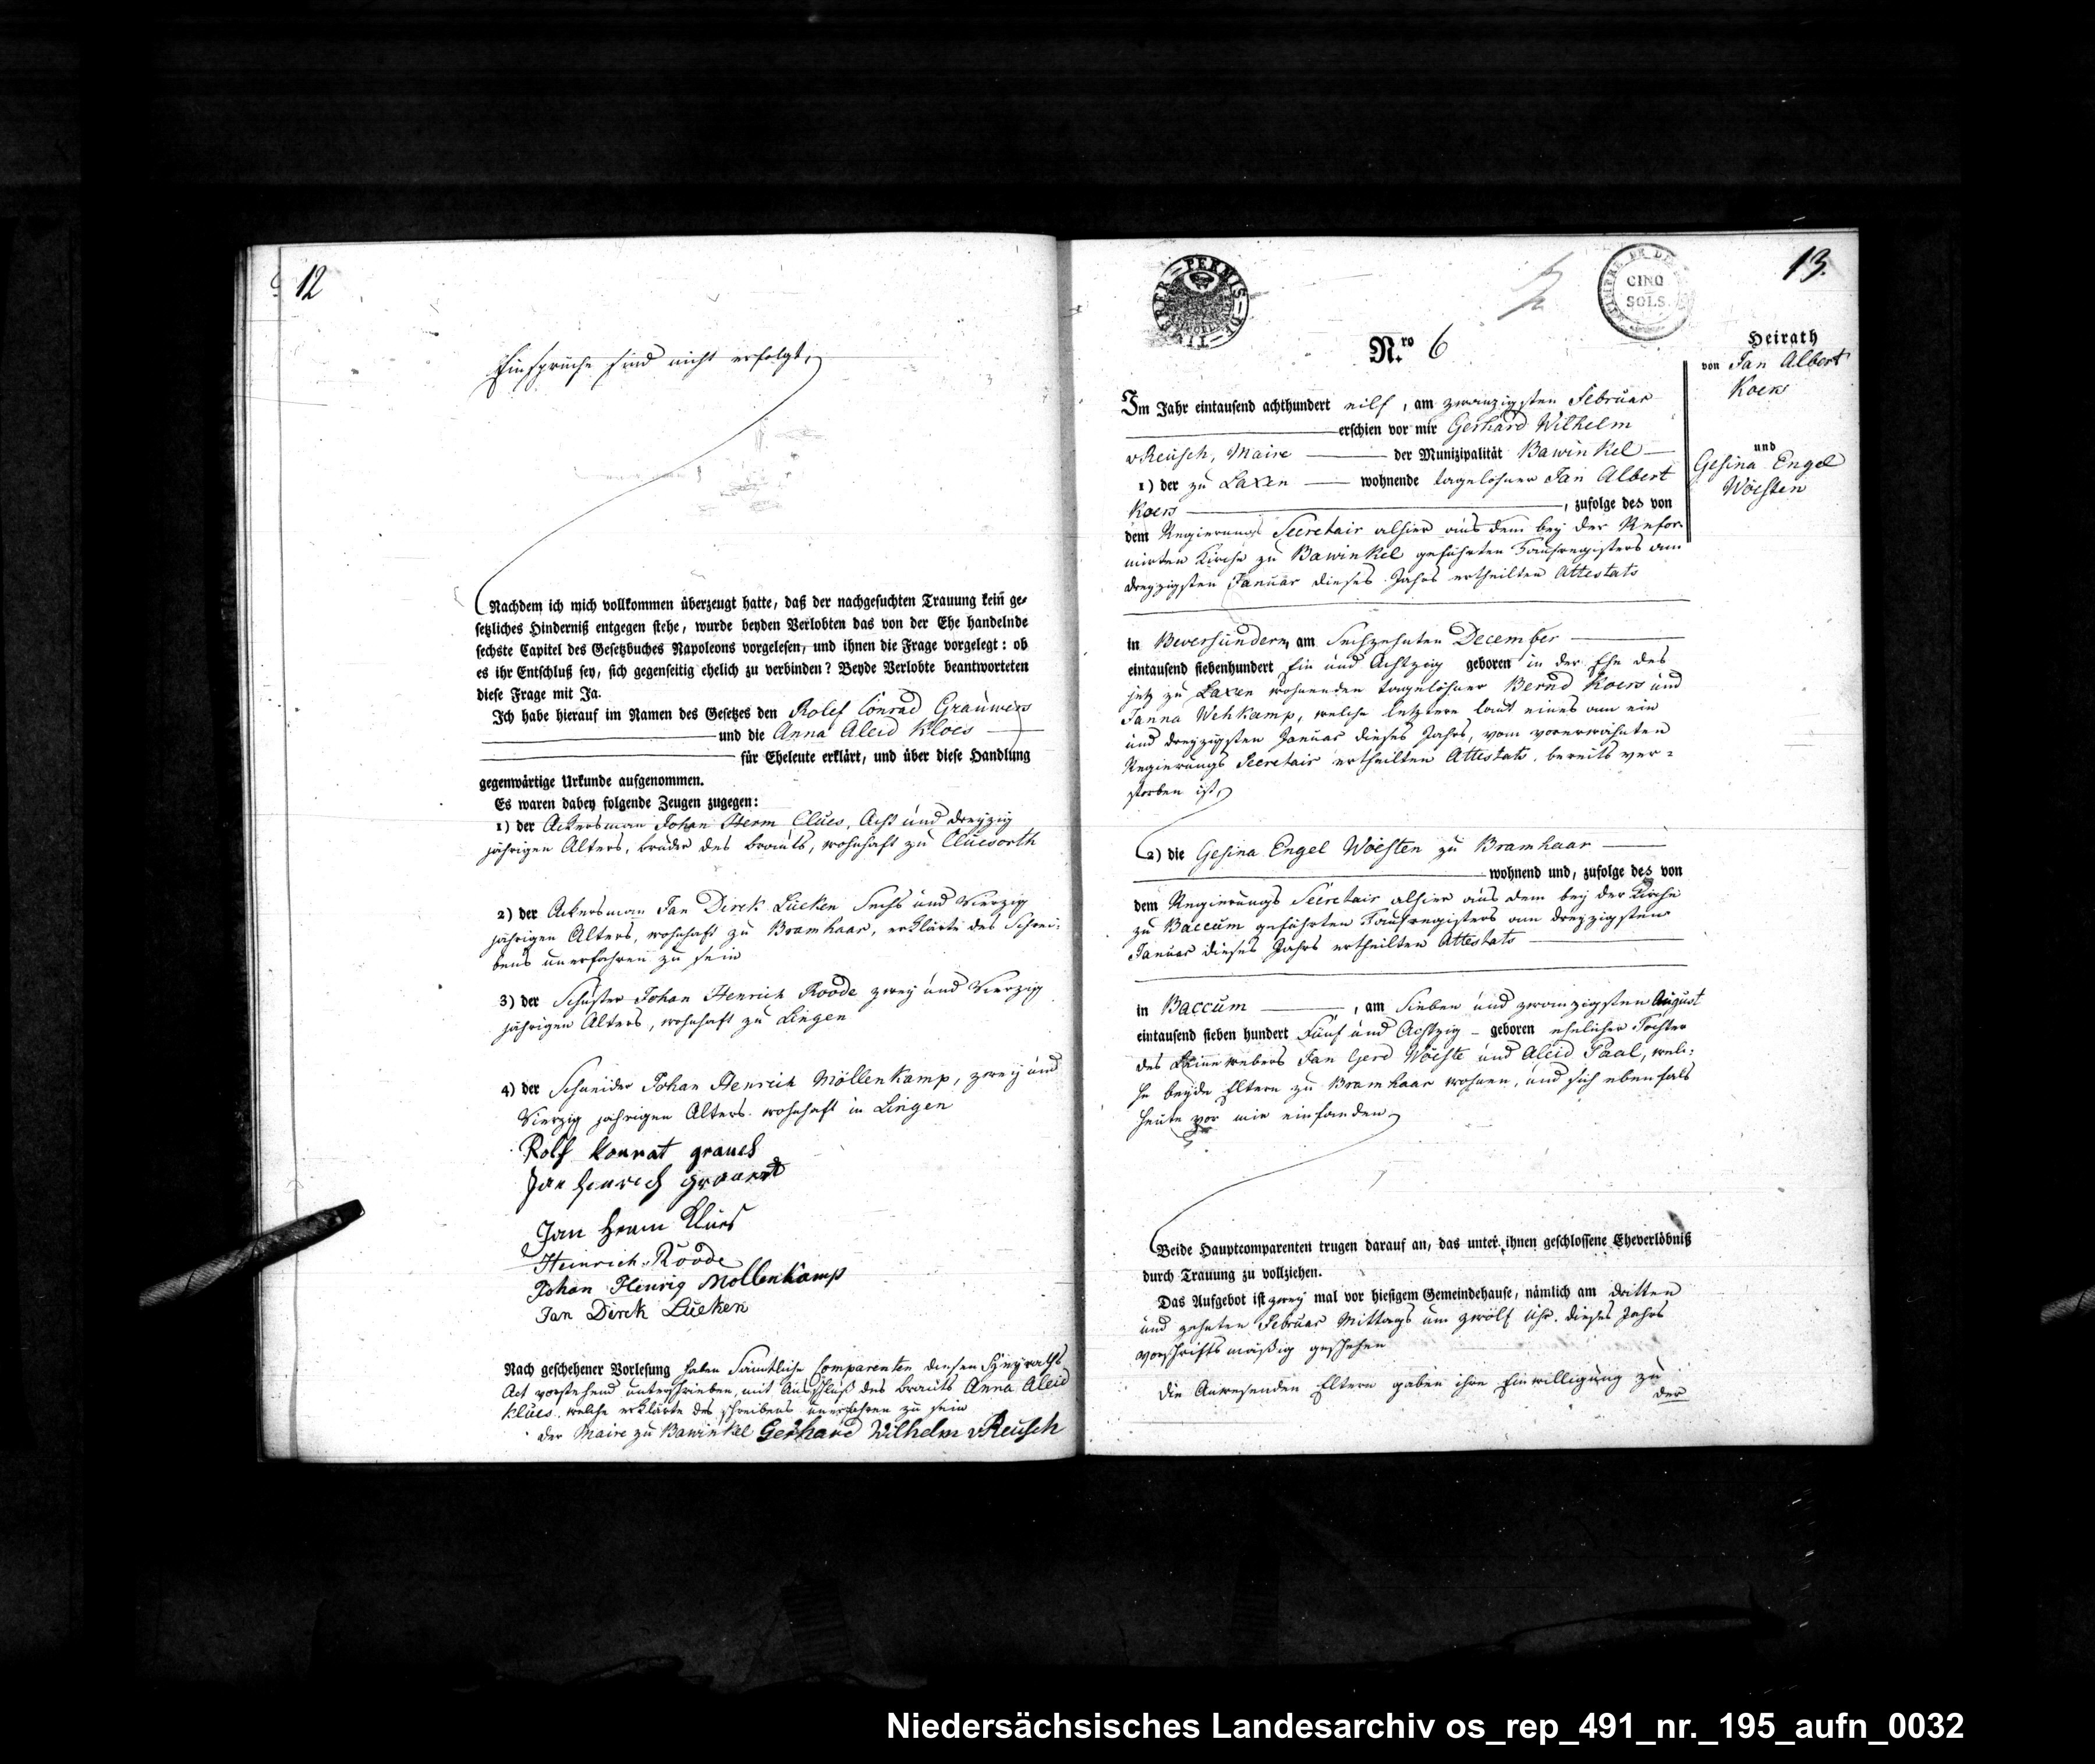 12
Einsprüche sind nicht erfolgt,
Nachdem ich mich vollkommen überzeugt hatte, daß der nachgesuchten Trauung kein ge-
setzliches Hinderniß entgegen stehe, wurde beyden Verlobten das von der Ehe handelnde
sechste Capitel des Gesetzbuches Napoleons vorgelesen, und ihnen die Frage vorgelegt: ob
es ihr Entschluß sey, sich gegenseitig ehelich zu verbinden? Beyde Verlobte beantworteten
diese Frage mit Ja.
Ich habe hierauf im Namen des Gesetzes den Rolef Conrad Grauwers
und die Anna Aleid Kloes
für Eheleute erklärt, und über diese Handlung
gegenwärtige Urkunde aufgenommen.
Es waren dabey folgende Zeugen zugegen:
1) der Ackersman Johan Herm Clües, Acht und dreyzig
jährigen Alters, bruder des brauts, wohnhaft zu Clüesorth
2) der Ackersman Jan Dirck Lücken Sechs und Vierzig
jährigen Alters, wohnhaft zu Bramhaar, erklärte des Schrei-
bens unerfahren zu sein
3) der Schuster Johan Henrich Roode zwey und Vierzig
jährigen Alters, wohnhaft zu Lingen
4) der Schneider Johan Henrich Möllenkamp, zwey und
Vierzig jährigen Alters wohnhaft in Lingen
Rolf Konrat graues
Jan Henrich
Jan Herm Klues
Heinrich Roode
Johan Henrig Mollenkamp
Jan Dirck Lueken
Nach geschehener Vorlesung haben Sämtliche Comparenten diesen Heyraths
Act vorstehend unterschrieben, mit Ausschluß des brauts Anna Aleid
Klües, welche erklärte des schreibens unerfahren zu sein
der Maire zu Bawinkel Gerhard Wilhelm vReusch
13.
PERMIS DE TIMBRER
CINQ
SOLS.
N.ro 6
Heirath
von Jan Albert
Koers
und
Gesina Engel
Wöesten
Im Jahr eintausend achthundert eilf, am zwanzigsten Februar
erschien vor mir Gerhard Wilhelm
vReusch, Maire der Munizipalität Bawinkel
1) der zu Laxen wohnende tagelöhner Jan Albert
Koers, zufolge des von
dem Regierungs Secretair alhier aus dem bey der Refor-
mirten Kirche zu Bawinkel geführten Taufregisters am
dreyzigsten Januar dieses Jahrs ertheilten Attestats
in Beversundern, am Sechzehnten December
eintausend siebenhundert Ein und Achtzig geboren in der Ehe des
jetz zu Laxen wohnenden tagelöhner Bernd Koers und
Janna Wehkamp, welche letztere laut eines am ein
und dreyzigsten Januar dieses Jahrs, vom vorerwähnten
Regierungs Secretair ertheilten Attestats, bereits ver-
storben ist,
2) die Gesina Engel Wöesten zu Bramhaar
wohnend und, zufolge des von
dem Regierungs Secretair alhier aus dem bey der Kirche
zu Baccum geführten Taufregisters am dreyzigsten
Januar dieses Jahrs ertheilten Attestats
in Baccum, am Sieben und zwanzigsten August
eintausend sieben hundert Fünf und Achtzig geboren ehelicher Tochter
des Leinenwebers Jan Gerd Wöeste und Aleid Paal, wel-
che beyde Eltern zu Bramhaar wohnen, und sich ebenfals
heute vor mir einfanden
Beide Hauptcomparenten trugen darauf an, das unter ihnen geschlossene Eheverlöbniß
durch Trauung zu vollziehen.
Das Aufgebot ist zwey mal vor hiesigem Gemeindehause, nämlich am dritten
und zehnten Februar Mittags um zwölf Uhr dieses Jahrs
vorschriftsmäßig geschehen
Die Anwesenden Eltern gaben ihre Einwilligung zu
der
Niedersächsisches Landesarchiv os_rep_491_nr._195_aufn_0032